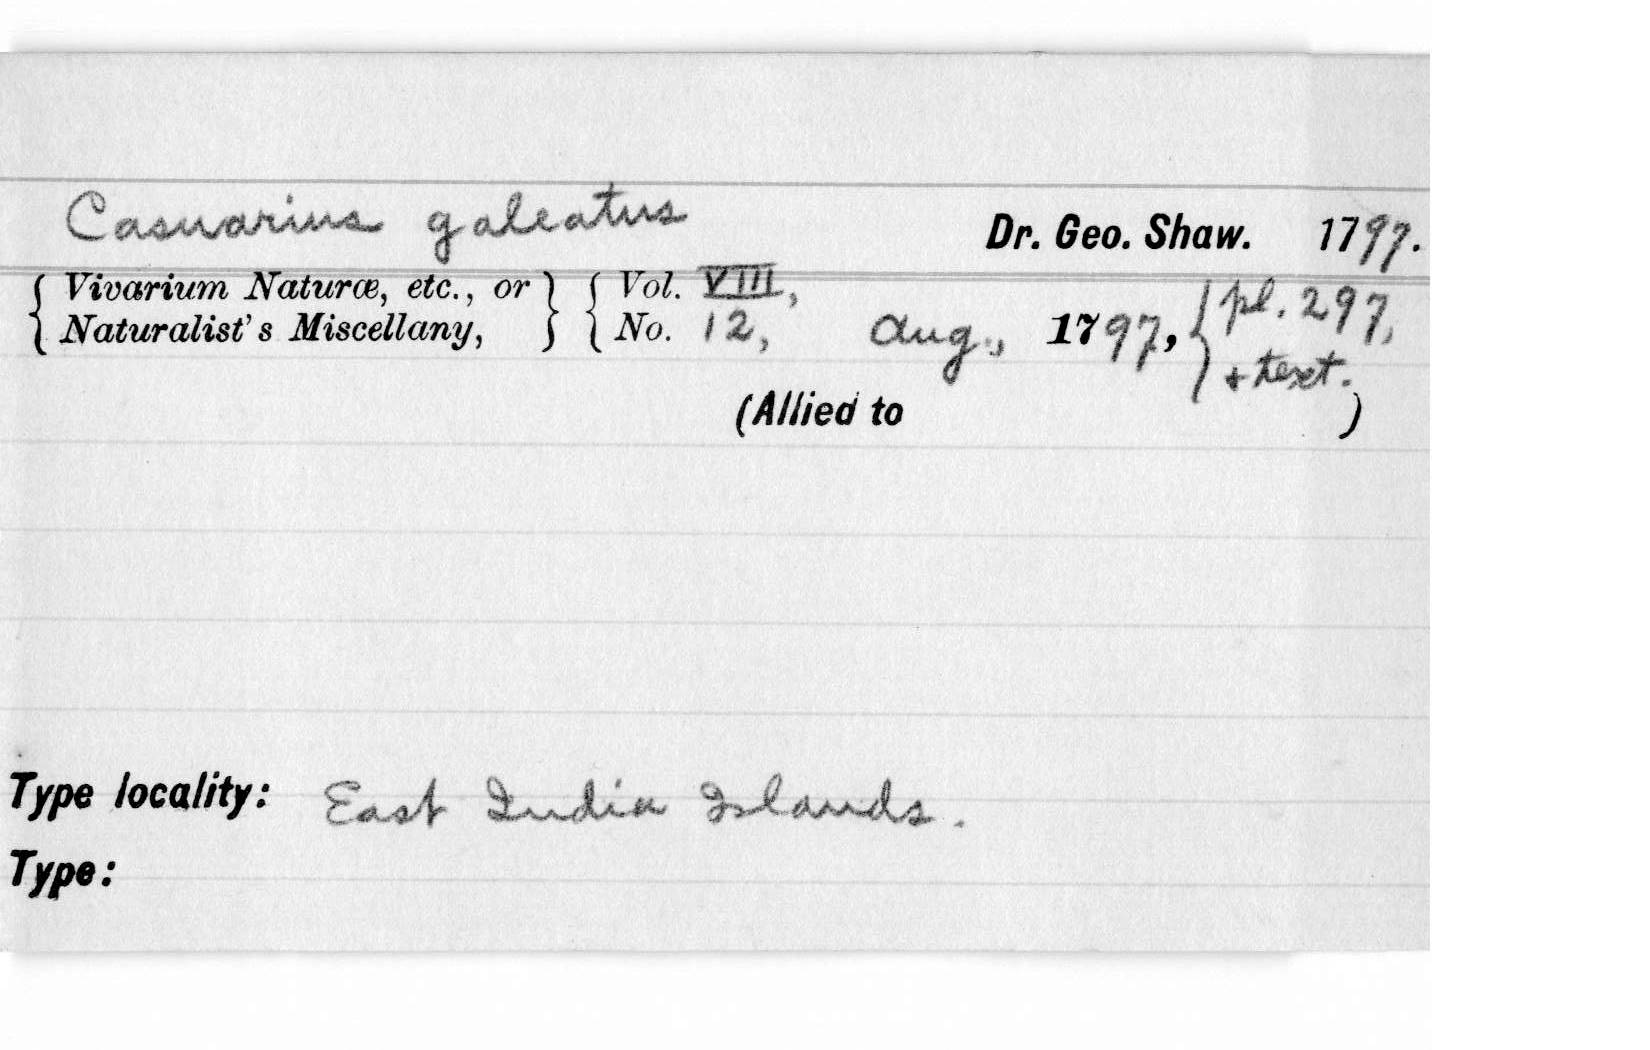 Casuarius galeatus Dr. Geo. Shaw. 1797.
{ Vivarium Naturæ, etc., or } { Vol. VIII, { pl. 297,
{ Naturalist's Miscellany, } { No. 12, Aug., 1797, { + text.
(Allied to )
Type locality: East India Islands.
Type: